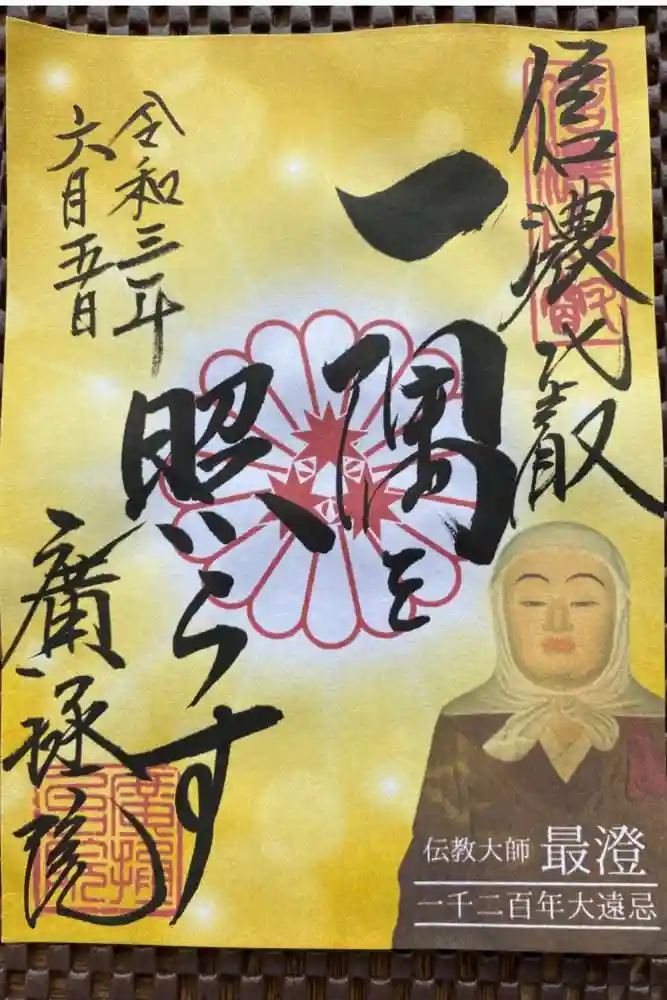 信濃比叡
一隅を
照らす
令和三年
六月五日
廣拯院
伝教大師 最澄
一千二百年大遠忌